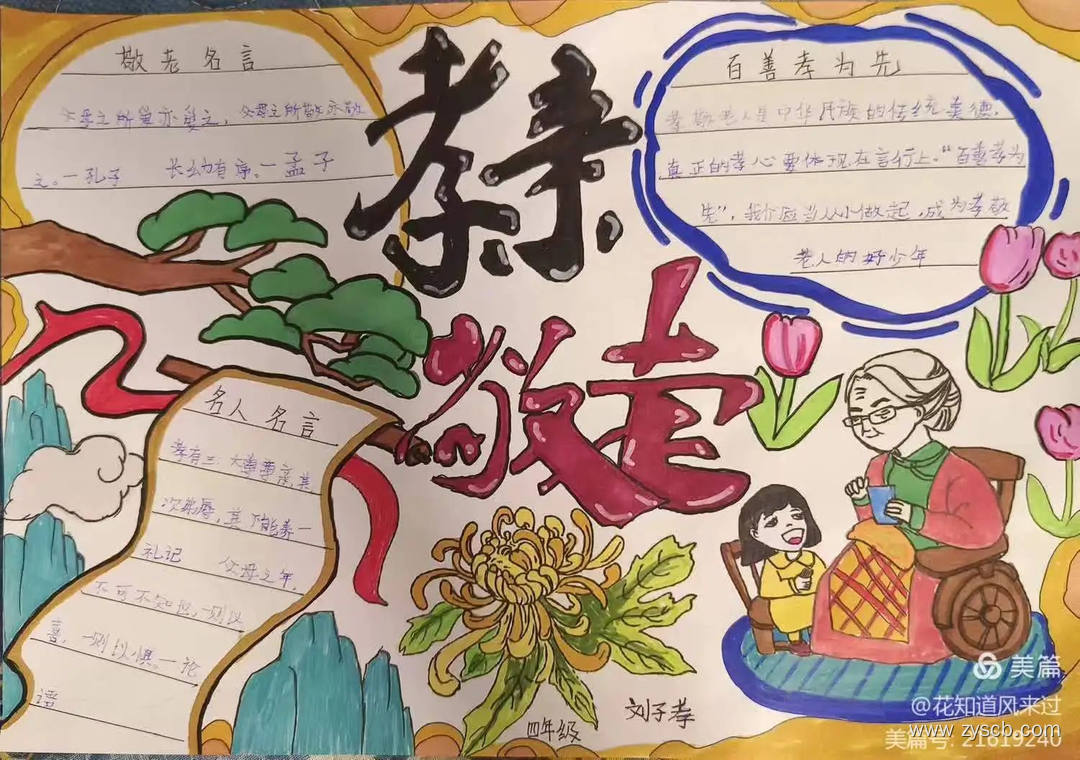 敬老名言
父母之所爱亦爱之,父母之所敬亦敬
之。一孔子 长幼有序。一孟子
孝亲
敬老
百善孝为先
孝敬老人是中华民族的传统美德,
真正的孝心要体现在言行上。“百善孝为
先”,我们应当从小做起,成为孝敬
老人的好少年
名人名言
孝有三:大孝尊亲,其
次弗辱,其下能养一
礼记 父母之年,
不可不知也,一则以
喜,一则以惧。一论
语
四年级
刘子孝
美篇
@花知道风来过
美篇号: 21619240
www.zyscb.com